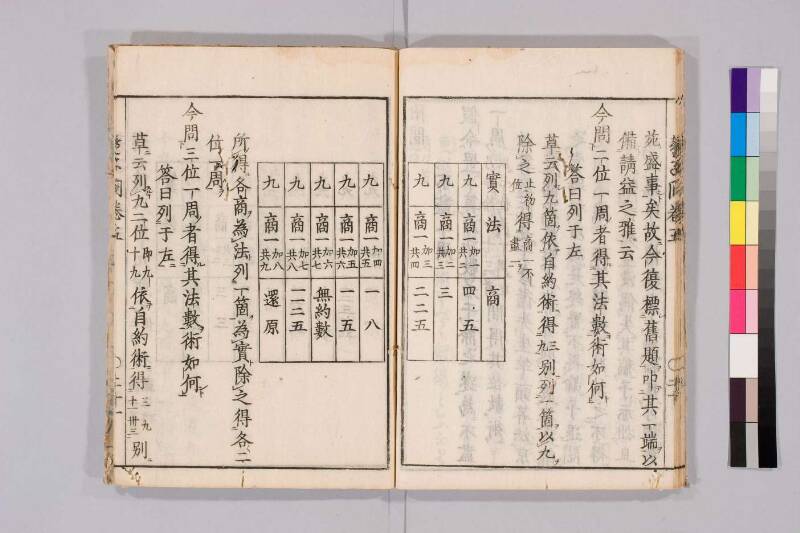 苑盛事矣故今復標舊題叩其一端以
備請益之雅云
今問二位一周者得其法數術如何
答曰列于左
草云列九箇依自約術得三九別列一箇以九
除之止初位得商一不盡一
實 法 商
九 商一加一共二 四五
九 商一加二共三 三
九 商一加三共四 二二五
九 商一加四共五 一八
九 商一加五共六 一五
九 商一加六共七 無約數
九 商一加七共八 一一二五
九 商一加八共九 還原
所得各商爲法列一箇爲實除之得各二
位一周
今問三位一周者得其法數術如何
答曰列于左
草云列九二位即九十九依自約術得三九十一卅三別